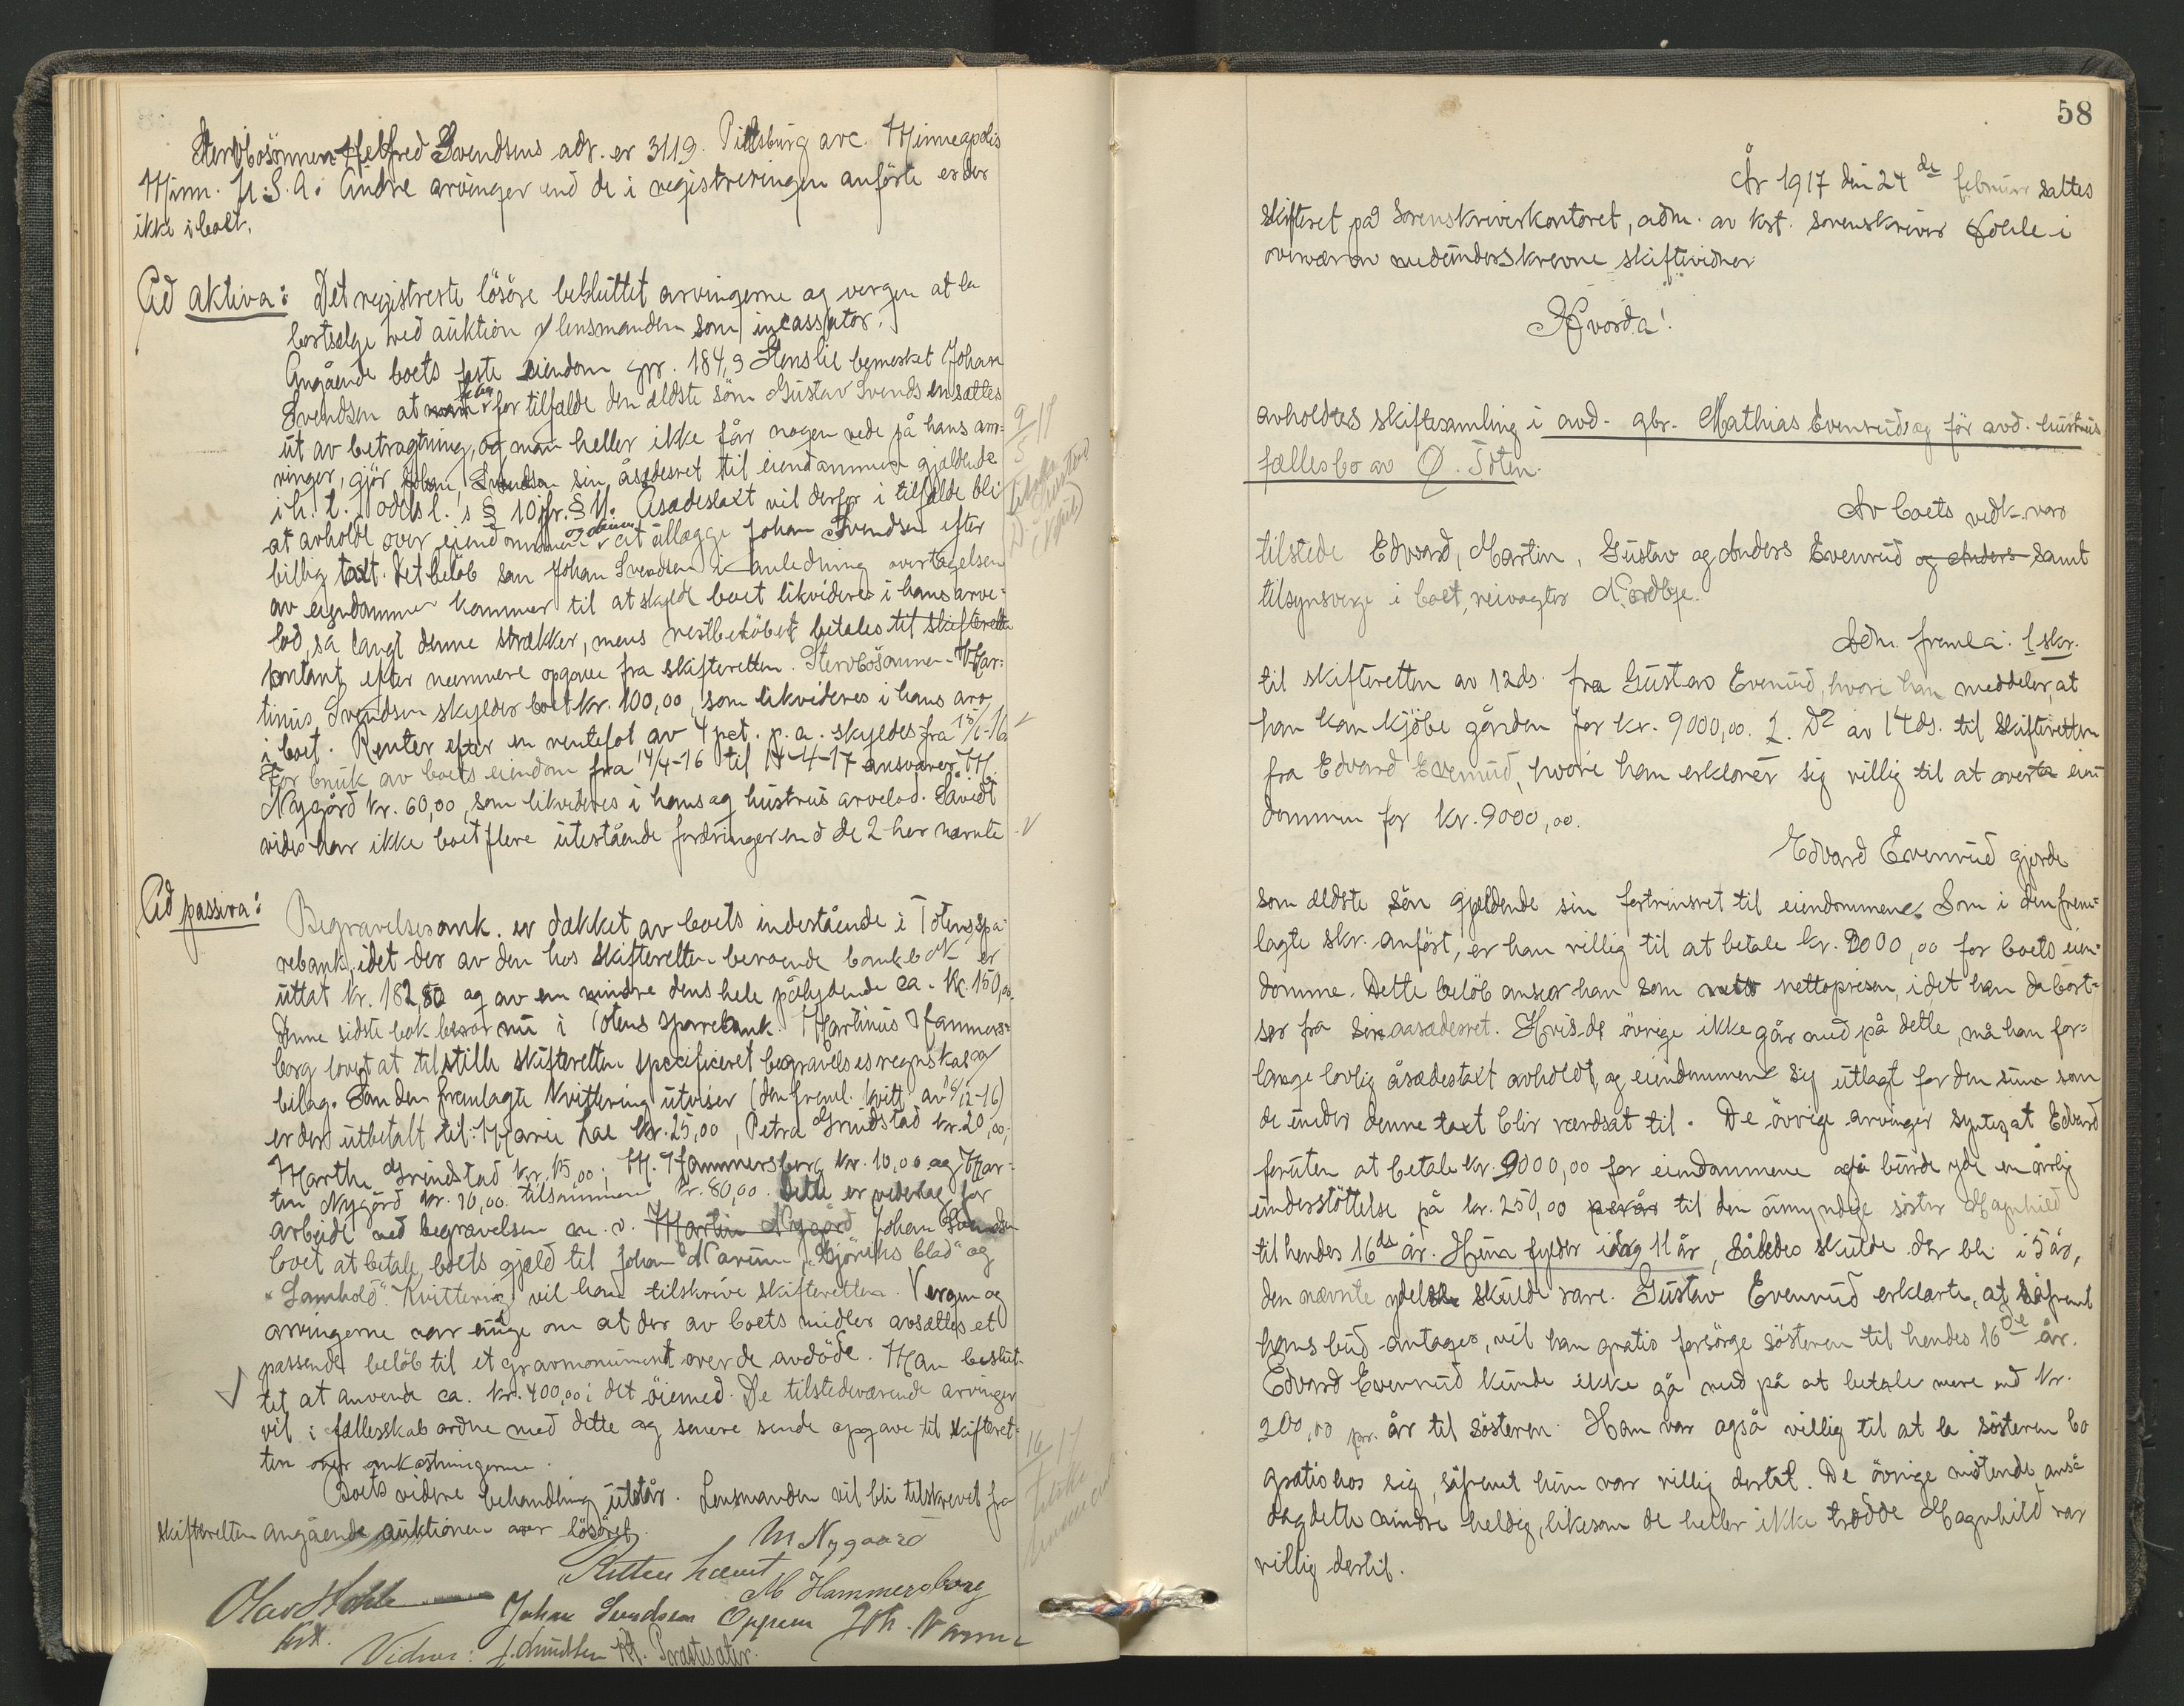 Stervbosönnen Helfred Svendsens adr. er 3119. Pittsburg ave. Minneapolis
Minn. U.S.A. Andre arvinger end de i registreringen anförte er der
ikke i boet.
Ad aktiva: Det registrerte lösöre besluttet arvingerne og vergen at la
bortselge ved auktion v/ lensmanden som incassator.
Angående boets faste eiendom gnr. 184,9 Stenslie bemerket Johan
Svendsen at for tilfælde den ældste sön Gustav Svendsen sættes
ut av betragtning, og man heller ikke får nogen rede på hans arv=
inger, gjör Johan Svendsen sin åsædesret til eiendommen gjældende
i h. t. odelsl.'s § 10 jfr. § 11. Åsædestakt vil derfor i tilfælde bli
at avholde over eiendommen at utlægge Johan Svendsen efter
billig takt. Det belöb som Johan Svendsen i anledning overtagelsen
av eiendommen kommer til at skylde boet likvideres i hans arve=
lod, så langt denne strækker, mens restbelöbet betales til skifteretten
kontant efter nærmere opgave fra skifteretten. Stervbosönnen Mar=
tinus Svendsen skylder boet kr. 100,00, som likvideres i hans arv
i boet. Renter efter en rentefot av 4 pct. p. a. skyldes fra
For bruk av boets eiendom fra 14/4-16 til 14-4-17 ansvarer M.
Nygård kr. 60,00, som likvideres i hans og hustrus arvelod. Såvidt
vides har ikke boet flere utestående fordringer end de 2 her nævnte
Ad passiva:
Begravelsesomk. er dækket av boets indestående i Totens spa=
rebank, idet der av den hos skifteretten beroende bankbok er
uttat kr. 182,80 og av en mindre dens hele pålydende ca. kr. 150,00.
Denne sidste bok beror nu i Totens sparebank. Martinus Hammers=
borg lovet at tilstille skifteretten specificeret begravelsesregnskap og
bilag. Som den fremlagte kvittering utviser (den freml. kvitt. av 16/12-16)
er der utbetalt til: Marie Lae kr. 25,00, Petra Grindstad kr. 20,00,
Marthe Grindstad kr. 15,00; M. Hammersborg kr. 10,00 og Mar=
tin Nygård kr. 10,00. tilsammen kr. 80,00. Dette er vederlag for
arbeide ved begravelsen m. v. Martin Nygård Johan Svendsen
lovet at betale boets gjæld til Johan Narum, "Gjöviks blad" og
"Samhold". Kvittering vil han tilskrive skifteretten. Vergen og
arvingerne var enige om at der av boets midler avsættes et
passende belöb til et gravmonument over de avdöde. Man beslut=
tet at anvende ca. kr. 400,00 i det öiemed. De tilstedeværende arvinger
vil i fællesskab ordne med dette og senere sende opgave til skifteret=
ten over omkostningerne.
Boets videre behandling utstår. Lensmanden vil bli tilskrevet fra
skifteretten angående auktionen over lösöret.
M Nygaard
Retten hævet
M Hammersborg
Johan Svendsen Oppem Joh. Narum
kst.
Vidner:
58
År 1917 den 24de februar sattes
skifteret på sorenskriverkontoret, adm. av kst. sorenskriver Hohle i
overvær av medunderskrevne skiftevidner
Hvorda!
avholdtes skiftesamling i avd. gbr. Mathias Evenrud og för avd. hustrus
fællesbo av Ö. Toten.
Av boets vedk. var
tilstede Edvard, Martin, Gustav og Anders Evenrud og Anders samt
tilsynsverge i boet, veivogter Nordbye.
Adm. fremla: 1 skr.
til skifteretten av 12 ds. fra Gustav Evenrud, hvori han meddeler, at
han kan kjöbe gården for kr. 9000,00. 2. Do av 14 ds. til skifteretten
fra Edvard Evenrud, hvori han erklærer sig villig til at overta eien
dommen for kr. 9000,00.
Edvard Evenrud gjorde
som ældste sön gjældende sin fortrinsret til eiendommene. Som i den frem=
lagte skr. anfört, er han villig til at betale kr. 9000,00 for boets eien=
domme. Dette belöb anser han som netto nettoprisen, idet han da bort=
ser fra sin aasædesret. Hvis de övrige ikke går med på dette, må han for=
lange lovlig åsædestakt avholdt, og eiendommene sig utlagt for den sum som
de under denne taxt blir værdsat til. De övrige arvinger syntes at Edvard
foruten at betale kr. 9000,00 for eiendommene også burde yde en årlig
understöttelse på kr. 250,00 per år til den umyndige söster Magnhild
til hendes 16de år. Hun fylder idag 11 år, således skulde der bli i 5 år,
den nævnte ydelse skulde vare. Gustav Evenrud erklærte, at såfremt
hans bud antages, vil han gratis forsörge sösteren til hendes 16de år.
Edvard Evenrud kunde ikke gå med på at betale mere end kr.
200,00 pr. år til sösteren. Han var også villig til at la sösteren bo
gratis hos sig, såfremt hun var villig dertil. De övrige mötende anså
dog dette mindre heldig, likesom de heller ikke trodde Magnhild var
villig dertil.